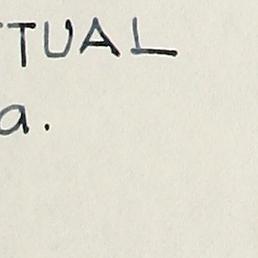 TUAL
a.